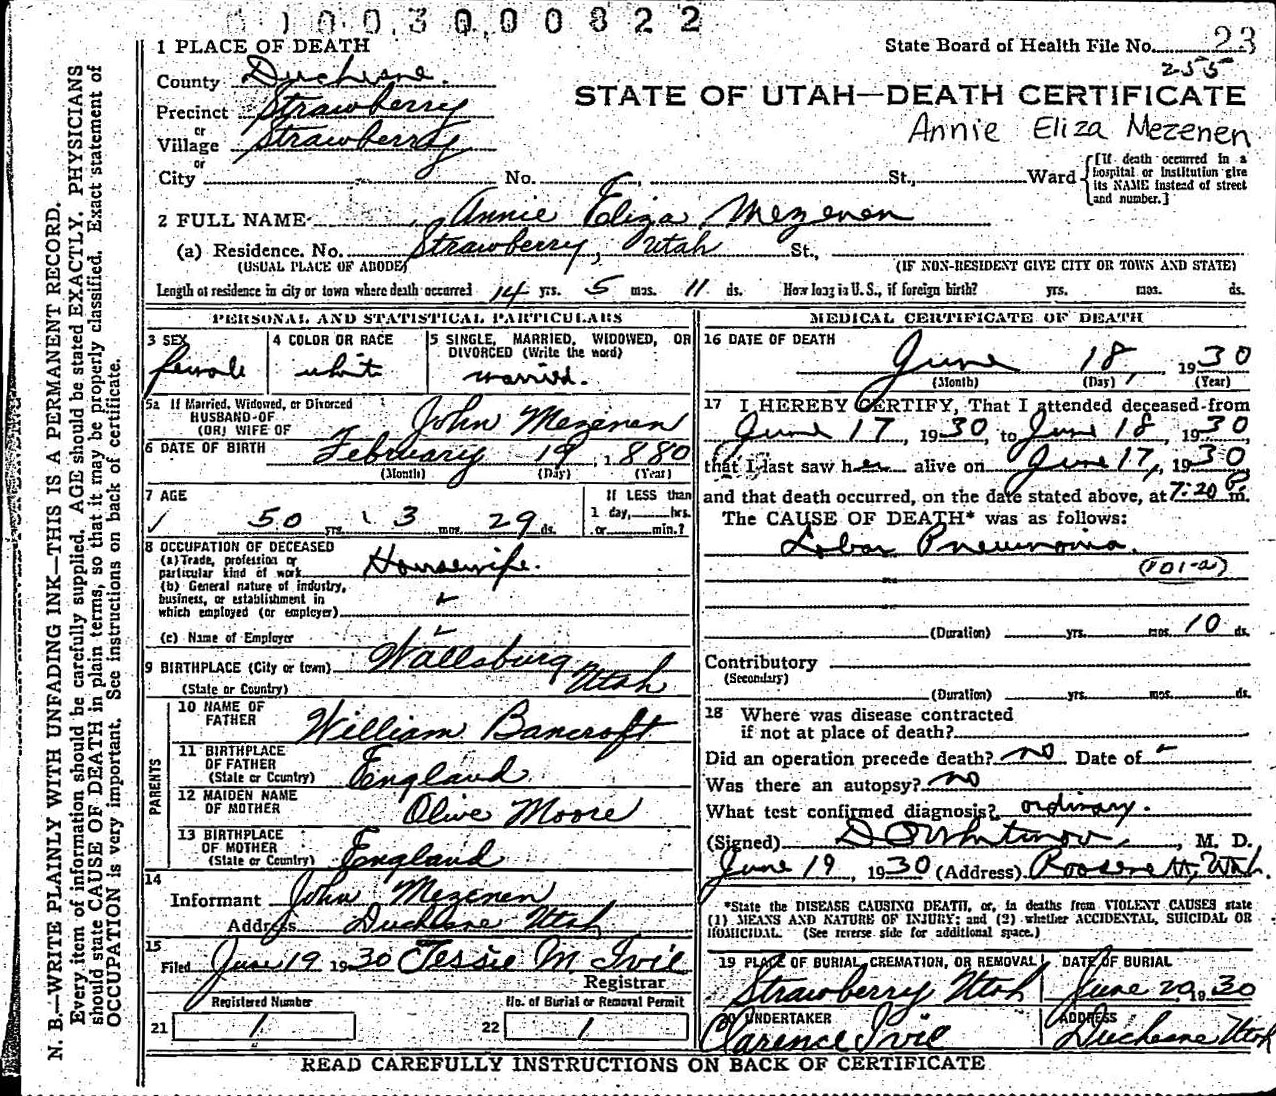 0 1 0 0 3 0 0 0 8 2 2
State Board of Health File No. 23
255
STATE OF UTAH—DEATH CERTIFICATE
Annie Eliza Mezenen
1 PLACE OF DEATH
County Duchesne.
Precinct Strawberry
or
Village Strawberry
or
City No. St., Ward
{[If death occurred in a
hospital or institution give
its NAME instead of street
and number.]
2 FULL NAME Annie Eliza Mezenen
(a) Residence. No. Strawberry, Utah St.,
(USUAL PLACE OF ABODE) (IF NON-RESIDENT GIVE CITY OR TOWN AND STATE)
Length of residence in city or town where death occurred 14 yrs. 5 mos. 11 ds. How long in U.S., if foreign birth? yrs. mos. ds.
PERSONAL AND STATISTICAL PARTICULARS
3 SEX
female
4 COLOR OR RACE
white
5 SINGLE, MARRIED, WIDOWED, OR
DIVORCED (Write the word)
married.
5a If Married, Widowed, or Divorced
HUSBAND OF
(OR) WIFE OF John Mezenen
6 DATE OF BIRTH February 19, 1880
(Month) (Day) (Year)
7 AGE
50 yrs. 3 mos. 29 ds.
If LESS than
1 day, hrs.
or min.?
8 OCCUPATION OF DECEASED
(a) Trade, profession or
particular kind of work Housewife.
(b) General nature of industry,
business, or establishment in
which employed (or employer)
(c) Name of Employer
9 BIRTHPLACE (City or town) Wallsburg
(State or Country) Utah
PARENTS
10 NAME OF
FATHER William Bancroft
11 BIRTHPLACE
OF FATHER
(State or Country) England
12 MAIDEN NAME
OF MOTHER Olive Moore
13 BIRTHPLACE
OF MOTHER
(State or Country) England
14
Informant John Mezenen
Address Duchesne Utah
15
Filed June 19 1930 Tessie M Ivie
Registrar
Registered Number No. of Burial or Removal Permit
21 1 22 1
MEDICAL CERTIFICATE OF DEATH
16 DATE OF DEATH
June 18, 1930
(Month) (Day) (Year)
17 I HEREBY CERTIFY, That I attended deceased from
June 17, 1930, to June 18, 1930
that I last saw her alive on June 17, 1930
and that death occurred, on the date stated above, at 7:20 P. m.
The CAUSE OF DEATH* was as follows:
Lobar Pneumonia.
(101-a)
(Duration) yrs. mos. 10 ds.
Contributory
(Secondary)
(Duration) yrs. mos. ds.
18 Where was disease contracted
if not at place of death?
Did an operation precede death? no Date of
Was there an autopsy? no
What test confirmed diagnosis? ordinary.
(Signed) , M. D.
June 19, 1930 (Address) Roosevelt, Utah.
*State the DISEASE CAUSING DEATH, or, in deaths from VIOLENT CAUSES state
(1) MEANS AND NATURE OF INJURY; and (2) whether ACCIDENTAL, SUICIDAL OR
HOMICIDAL. (See reverse side for additional space.)
19 PLACE OF BURIAL, CREMATION, OR REMOVAL DATE OF BURIAL
Strawberry Utah June 20, 1930
20 UNDERTAKER ADDRESS
Clarence Ivie Duchesne Utah
READ CAREFULLY INSTRUCTIONS ON BACK OF CERTIFICATE
N. B.—WRITE PLAINLY WITH UNFADING INK—THIS IS A PERMANENT RECORD.
Every item of information should be carefully supplied. AGE should be stated EXACTLY. PHYSICIANS
should state CAUSE OF DEATH in plain terms, so that it may be properly classified. Exact statement of
OCCUPATION is very important. See instructions on back of certificate.